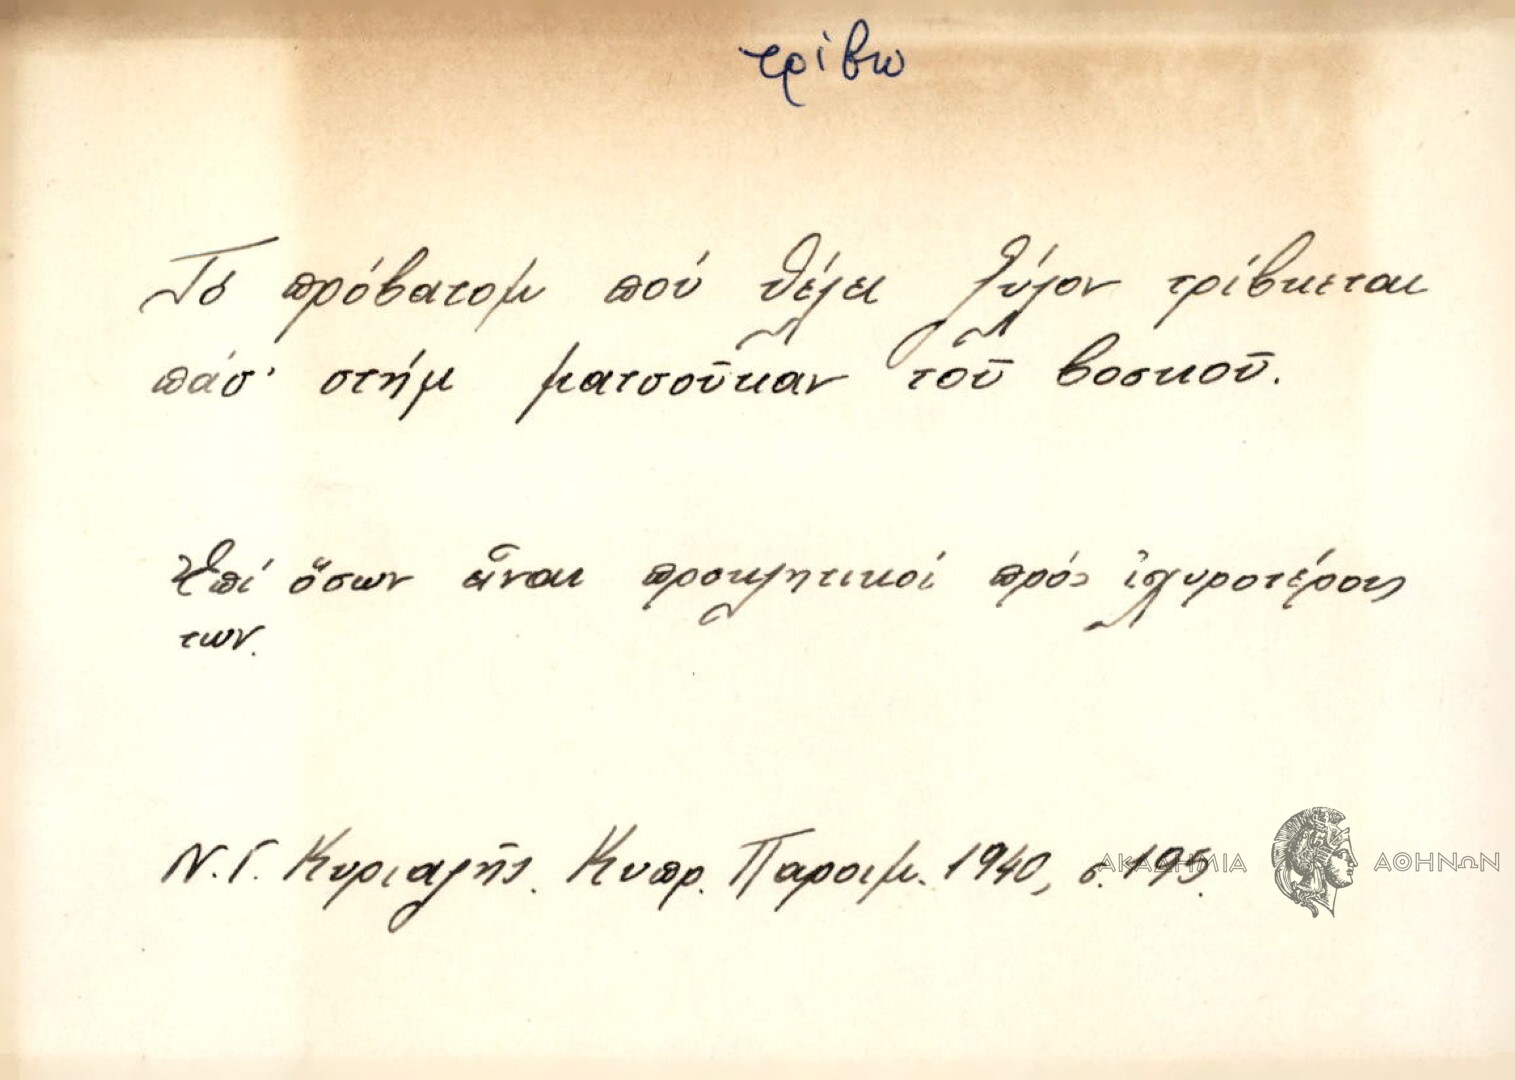 τρίβω
Τό πρόβατομ πού θέλει ξύλον τρίβκεται
πάσ' στήμ ματσοῦκαν τοῦ βοσκοῦ.
Ἐπί ὅσων εἶναι προκλητικοί πρός ἰσχυροτέρους
των.
Ν. Γ. Κυριαζῆς. Κυπρ. Παροιμ. 1940, σ. 195.
ΑΚΑΔΗΜΙΑ ΑΘΗΝΩΝ